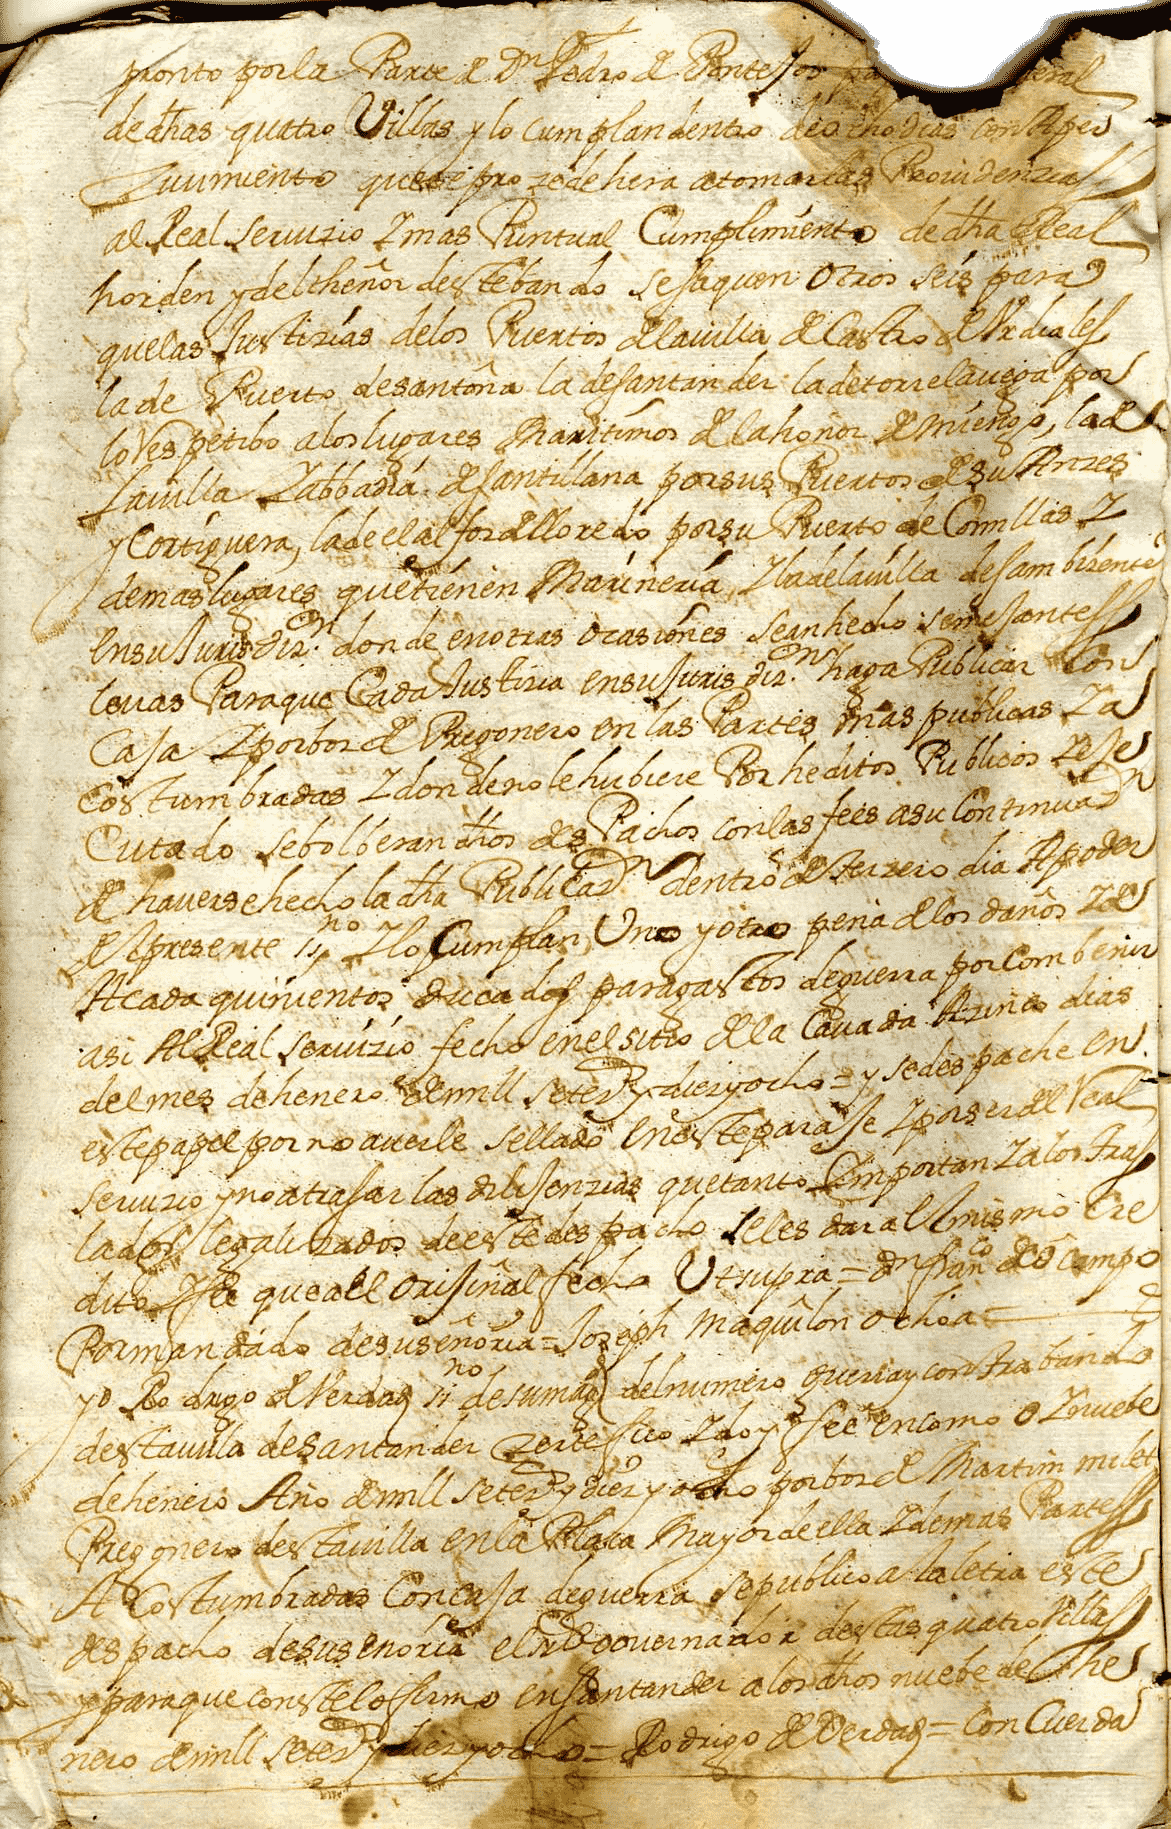 pronto por la Parte de Dn Pedro de Pontejos
de dhas quatro Villas y lo cumplan dentro de ocho dias con Aper
Zuvimiento que se prozedehera a tomar las Providenzias
al Real Servizio Z mas Puntual Cumplimiento de dha Real
horden y del theñor deste bando se saquen otros seis para
que las Justizias de los Puertos de la villa de Castro de Vrdiales
la de Puerto de santoña la de santander la de torrelavega por
lo Respetibo a los lugares Maritimos de la hoñor de miengo, la de
La villa Z abbadia de santillana por sus Puertos de su Anzes
y Cortiguera, la de el alfoz de lloredo por su Puerto de Comillas Z
demas lugares que tienen Marineria, Z la de la villa de san bizente
En su Jurisdizn. donde en otras ocasiones se an hecho semejantes
levas Para que Cada Justizia en su Jurisdizn. haga Publicar Con
Caja Z por boz de Pregonero en las Partes mas publicas Z a
Costumbradas Z donde no le hubiere Por heditos Publicos Z eje
Cutado se bolberan dhos desPachos con las fees a su Continuazn
de haverse hecho la dha Publicazn dentro de terzero dia A poder
del presente ssno Z lo Cumplan Uno y otro pena de los daños Z de
A cada quinientos ducados para gastos de guerra por Combenir
asi Al Real servizio fecho en el sitio de la Cavada A zinco dias
del mes de henero de mill setezs y diez y ocho = y se despache en
este papel por no averle sellado En este paraje Z por ser del Real
servizio y no atrasar las dilijenzias que tanto Importan Z a los tras
lados legalizados de este despacho se les dara el mismo Cre
dito Z fee que a el orijinal fecho Ut supra = Dn franco de ocampo
Por mandado de su señoria = Joseph Maquilon ochoa =
yo Rodrigo de Verdad ssno de su magd del numero guerra y contrabando
desta villa de santander Zertifico Z doy fee en como o Z nuebe
de henero Año de mill setezs y diez y ocho por boz de Martin
Pregonero desta villa en la Plaza Mayor de ella Z demas Partes
A Costumbradas Con caja de guerra se publico a la letra este
despacho de su senoria el governador destas quatro Villas
y para que conste lo firmo en santander a los dhos nuebe de he
nero de mill setezs y diez y ocho = Rodrigo de Verdad = Concuerda